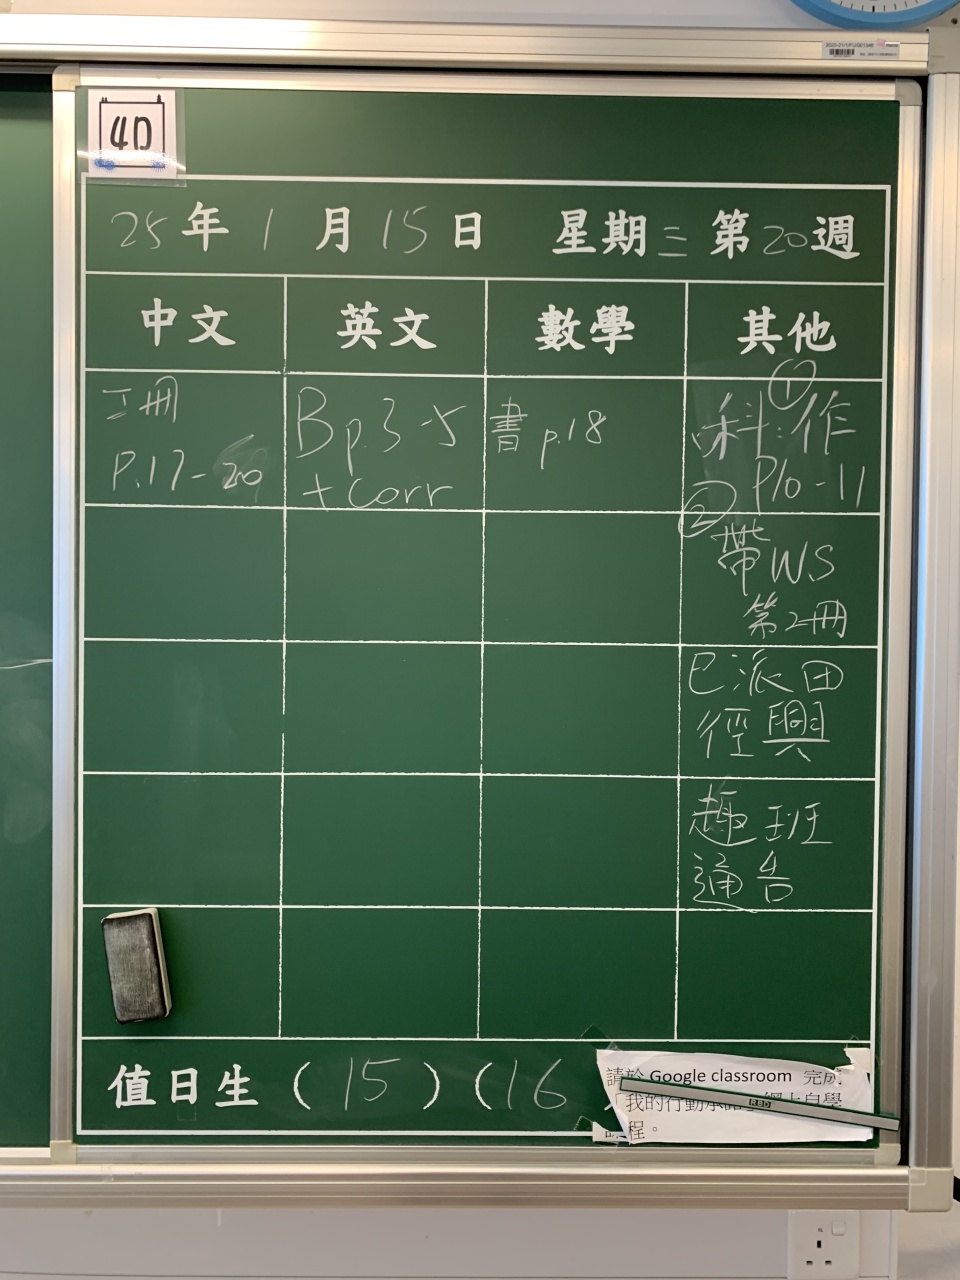 4D
25年1月15日 星期三 第20週
中文 英文 數學 其他
工冊
P.17-20
Bp.3-5
+ corr
書 p.18
① 科:作
P10-11
② 帶W.S
第2冊
已派田
徑興
趣班
通告
值日生 (15) (16
請於 Google classroom 完成
「我的行動承諾」網上自學
課程。
RBD